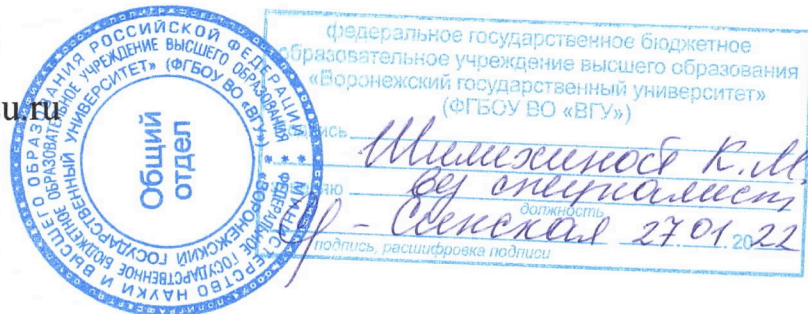 u.ru
МИНИСТЕРСТВО НАУКИ И ВЫСШЕГО ОБРАЗОВАНИЯ РОССИЙСКОЙ ФЕДЕРАЦИИ
ФЕДЕРАЛЬНОЕ ГОСУДАРСТВЕННОЕ БЮДЖЕТНОЕ ОБРАЗОВАТЕЛЬНОЕ УЧРЕЖДЕНИЕ ВЫСШЕГО ОБРАЗОВАНИЯ
«ВОРОНЕЖСКИЙ ГОСУДАРСТВЕННЫЙ УНИВЕРСИТЕТ» (ФГБОУ ВО «ВГУ»)
Общий
отдел
федеральное государственное бюджетное
образовательное учреждение высшего образования
«Воронежский государственный университет»
(ФГБОУ ВО «ВГУ»)
К.М.
вед специалист
должность
27 01 2022
подпись, расшифровка подписи